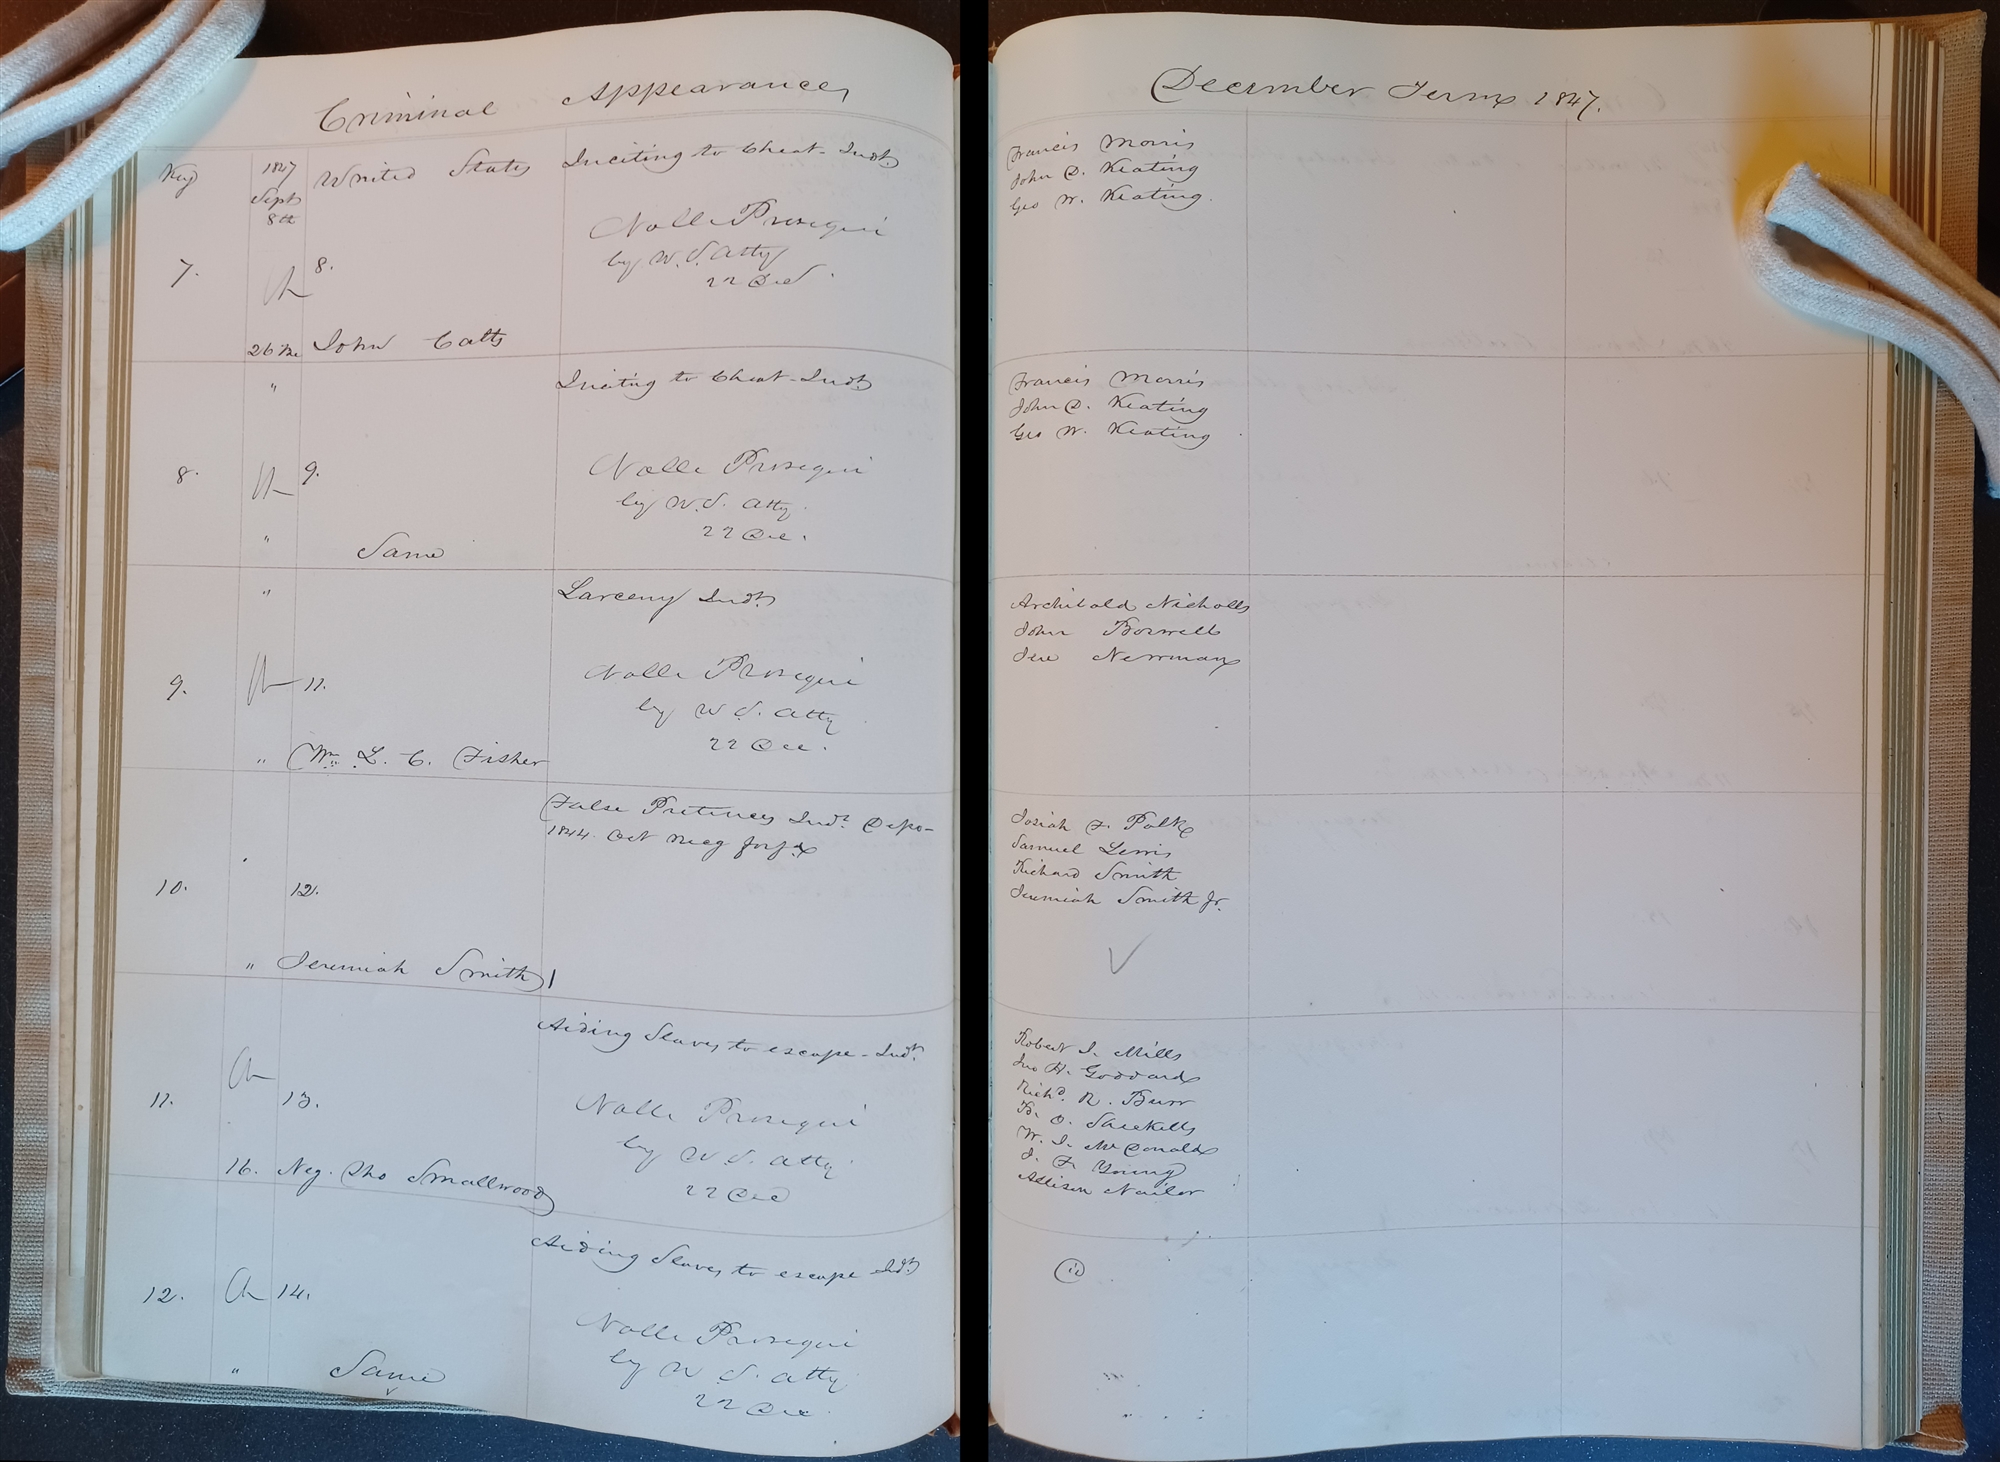 Criminal Appearances
Key 1847 United States Inciting to Cheat - Indt.
Sept
8th
Nolle Prosequi
7. 8. by U. S. Atty
22 Dec
26 John Catts
" Inciting to Cheat - Indt.
8. 9. Nolle Prosequi
by U. S. Atty
22 Dec.
" Same
" Larceny Indt.
9. 11. Nolle Prosequi
by U S. Atty
22 Dec.
" Wm. L. C. Fisher
False Pretences Indt. Depo-
1844. Oct
10. 12.
" Jeremiah Smith
Aiding Slaves to escape - Indt.
11. 13. Nolle Prosequi
by U S. Atty
22 Dec
16. Neg. Tho Smallwood
Aiding Slaves to escape Indt.
12. 14. Nolle Prosequi
by U S. Atty
22 Dec
" Same
December Term 1847.
Francis Morris
John D. Keating
Geo W. Keating.
Francis Morris
John D. Keating
Geo W. Keating
Archibald Nicholls
John Boswell
Jere Newman
Josiah F. Polk
Samuel Lewis
Richard Smith
Jeremiah Smith Jr.
Robert I. Mills
Jno H. Goddard
Richd. R. Burr
B. O. Sheckells
W. I. McDonald
J. F. Young
Allison Nailor